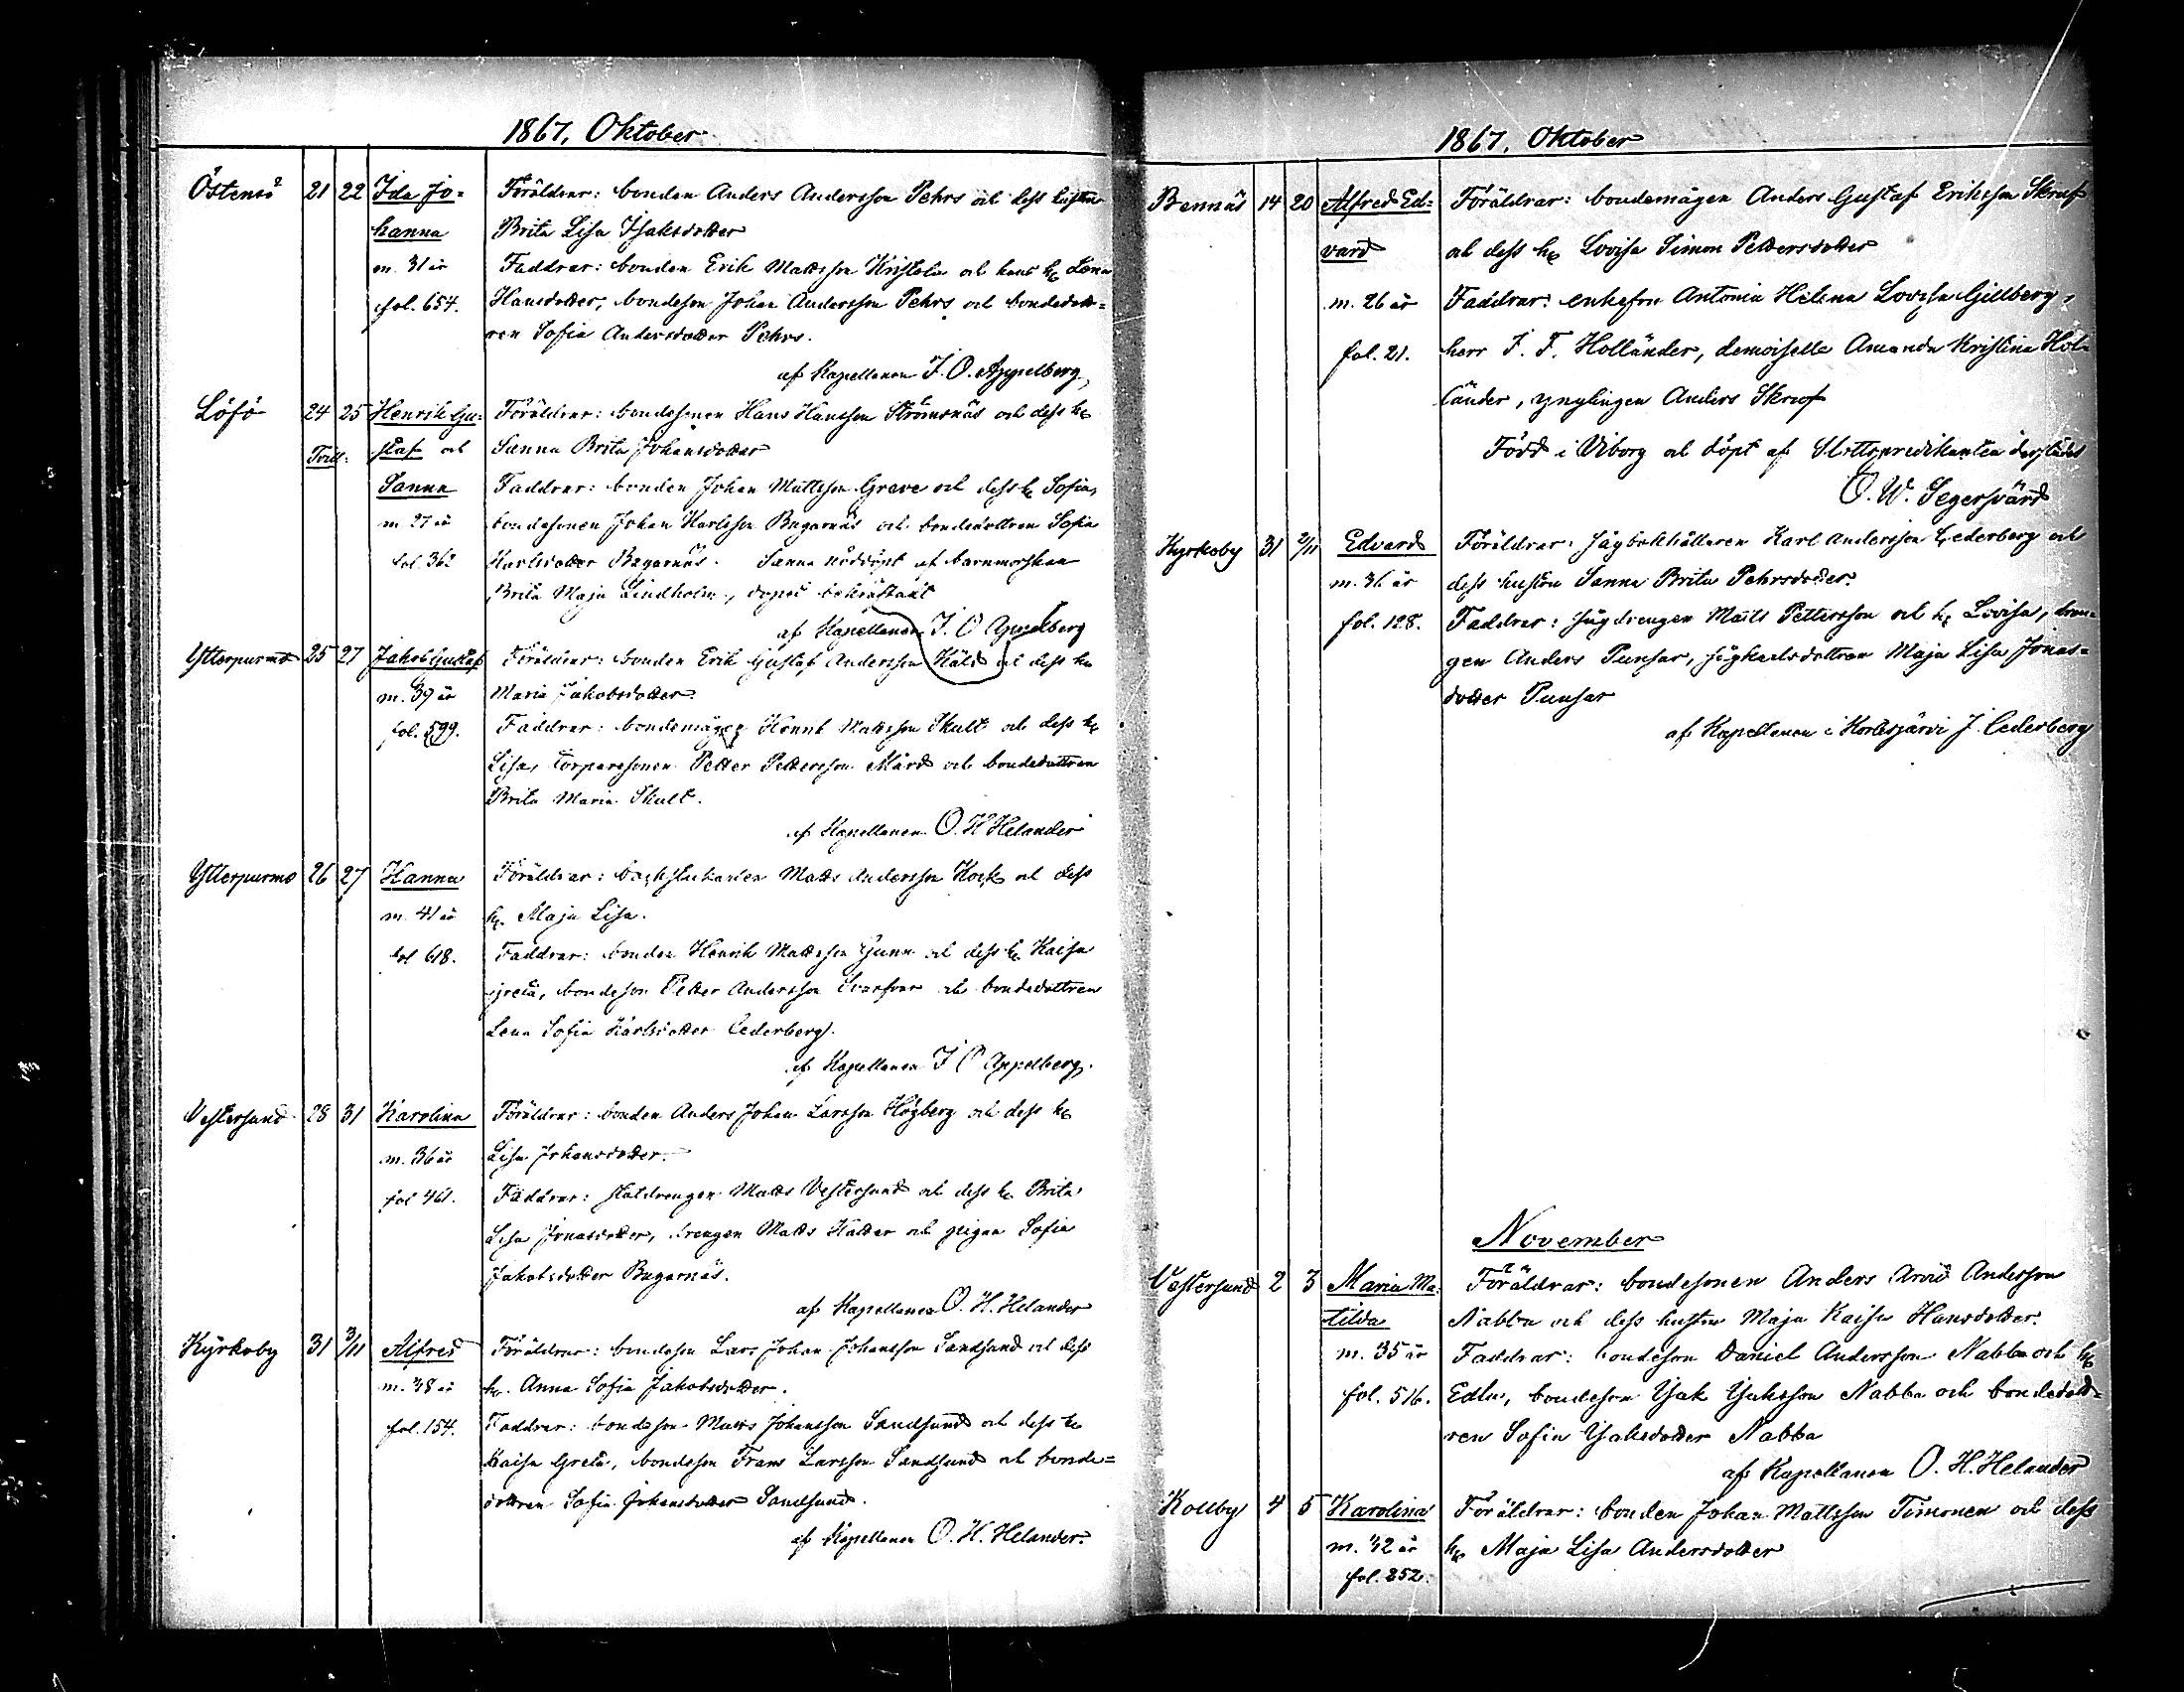 1867. Oktober
Östensö 21 22 Ida Jo= Föräldrar: bonden Anders Andersson Pehrs och dess hustru
hanna Brita Lisa Isaksdotter
m. 31 år Faddrar: bonden Erik Mattsson Kristola och hans h. Lena
fol. 654. Hansdotter, bondeson Johan Andersson Pehrs och bondedott=
ren Sofia Andersdotter Pehrs.
af Kapellanen J. O. Appelberg.
Löfö 24 25 Henrik Gu= Föräldrar: bondesonen Hans Hansson Strömsnäs och dess h.
Tvill. staf och Sanna Brita Johansdotter
Sanna Faddrar: bonden Johan Mattsson Greve och dess h. Sofia,
m 27 år bondesonen Johan Karlsson Bagarnäs och bondedottren Sofia
fol. 362 Karlsdotter Bagarnäs. Sanna nöddöpt af barnmorskan
Brita Maja Lindholm, dopet bekräftadt
af Kapellanen J. O Appelberg
Ytterpurmo 25 27 Jakob Gustaf Föräldrar: bonden Erik Gustaf Andersson Häld och dess h.
m. 39 år Maria Jakobsdotter.
fol. 599. Faddrar: bondemågen Henrik Mattsson Skult och dess h.
Lisa, torparesonen Petter Pettersson Mård och bondedottren
Brita Maria Skult.
af Kapellanen O. H Helander
Ytterpurmo 26 27 Hanna Föräldrar: backstukarlen Matts Andersson Kock och dess
m. 41 år h. Maja Lisa.
fol 618. Faddrar: bonden Henrik Mattsson Gunn och dess h. Kaisa
Greta, bondeson Petter Andersson Svarfvar och bondedottren
Lena Sofia Karlsdotter Cederberg.
af Kapellanen J O Appelberg.
Vestersund 28 31 Karolina Föräldrar: bonden Anders Johan Larsson Högberg och dess h.
m. 36 år Lisa Johansdotter.
fol 461. Faddrar: statdrengen Matts Vestersund och dess h. Brita
Lisa Jonasdotter, drengen Matts Hälder och pigan Sofia
Jakobsdotter Bagarnäs.
af Kapellanen O. H. Helander
Kyrkoby 31 3/11 Alfred Föräldrar: bondeson Lars Johan Johansson Sandsund och dess
m. 38 år h. Anna Sofia Jakobsdotter.
fol. 154. Faddrar: bondeson Matts Johansson Sandsund och dess h.
Kaisa Greta, bondeson Frans Larsson Sandsund och bonde=
dottren Sofia Johansdotter Sandsund.
af Kapellanen O. H. Helander.
1867. Oktober
Bennäs 14 20 Alfred Ed= Föräldrar: bondemågen Anders Gustaf Eriksson Skruf
vard och dess h. Lovisa Simon Pettersdotter
m. 26 år Faddrar: enkefru Antonia Helena Lovisa Gillberg,
fol. 21. herr J. F. Holländer, demoiselle Amanda Kristina Hol-
länder, ynglingen Anders Skruf
Född i Viborg och döpt af Slottspredikanten derstädes
O. W. Segersvärd
Kyrkoby 31 2/11 Edvard Föräldrar: Sågbokhållaren Karl Andersson Cederberg och
m. 36 år dess hustru Sanna Brita Pehrsdotter.
fol. 128. Faddrar: Sågdrengen Matts Pettersson och h. Lovisa, dren=
gen Anders Punsar, sågkarlsdottren Maja Lisa Jonas=
dotter Punsar
af Kapellanen i Kortesjärvi J. Cederberg
November
Vestersund 2 3 Maria Ma= Föräldrar: bondesonen Anders Arvid Andersson
tilda Nabba och dess hustru Maja Kaisa Hansdotter.
m. 35 år Faddrar: bondeson Daniel Andersson Nabba och h.
fol. 516. Edla, bondeson Isak Isaksson Nabba och bondedott=
ren Sofia Isaksdotter Nabba
af Kapellanen O. H. Helander
Kouby 4 5 Karolina Föräldrar: bonden Johan Mattsson Timonen och dess
m. 42 år h. Maja Lisa Andersdotter
fol. 252.